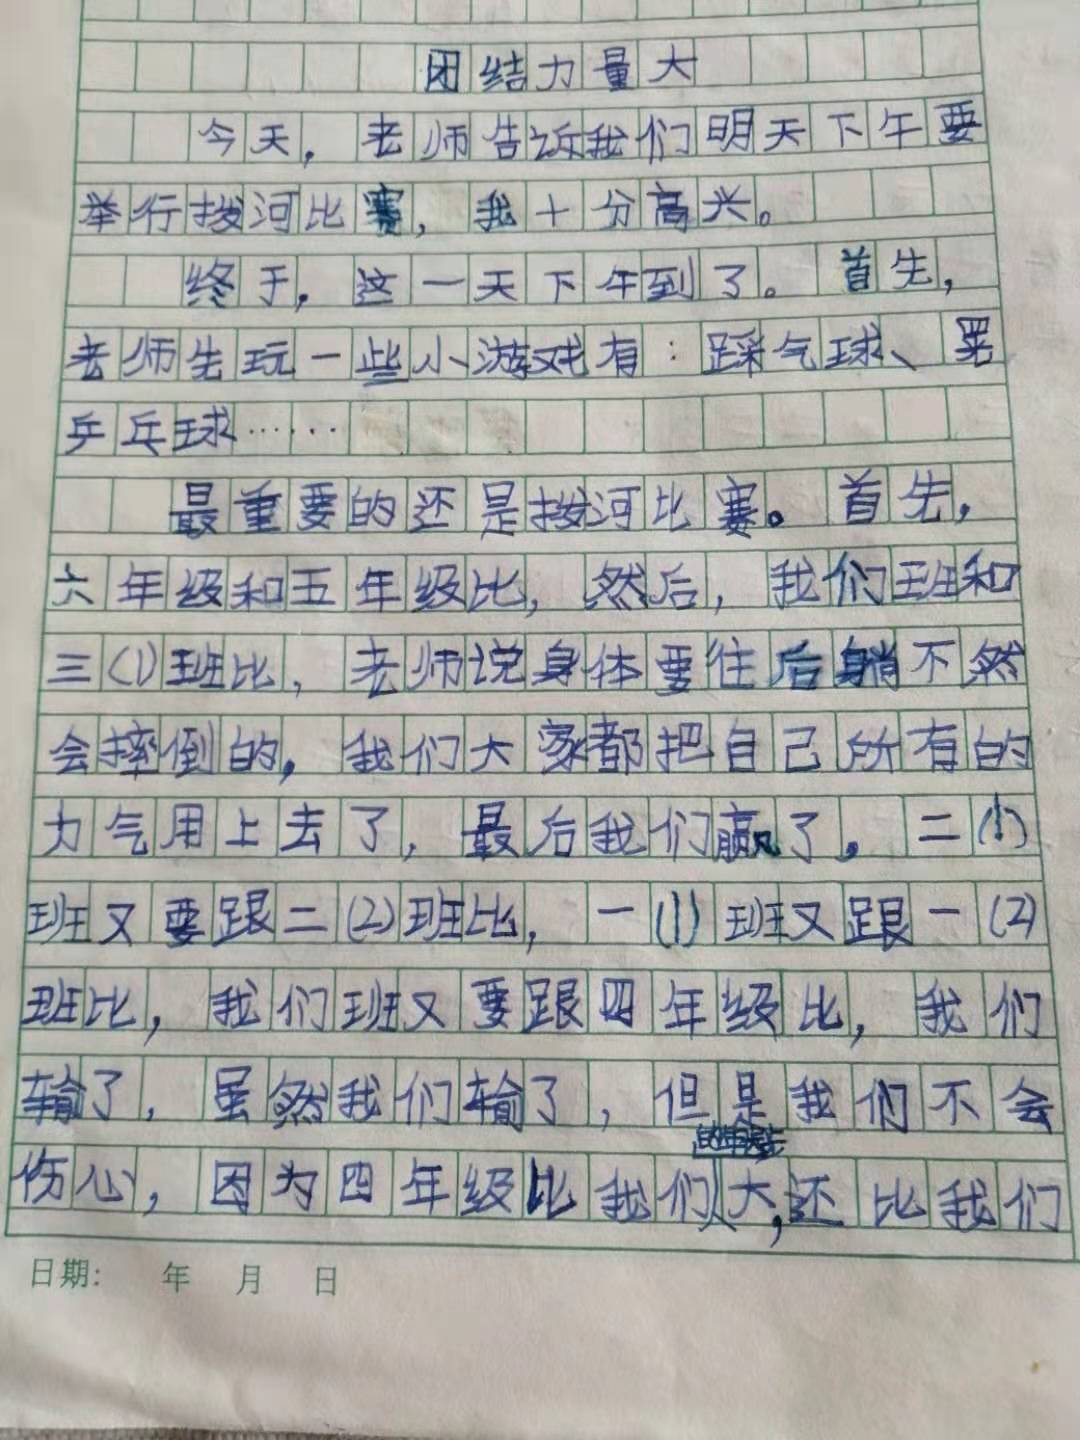 团结力量大
今天，老师告诉我们明天下午要
举行拨河比赛，我十分高兴。
终于，这一天下午到了。首先，
老师先玩一些小游戏有：踩气球、
乒乓球……
最重要的还是拨河比赛。首先，
六年级和五年级比，然后，我们班和
三(1)班比，老师说身体要往后躺不然
会摔倒的，我们大家都把自己所有的
力气用上去了，最后我们赢了。二(1)
班又要跟二(2)班比，一(1)班又跟一(2)
班比，我们班又要跟四年级比，我们
输了，虽然我们输了，但是我们不会
伤心，因为四年级比我们大，还比我们
日期： 年 月 日